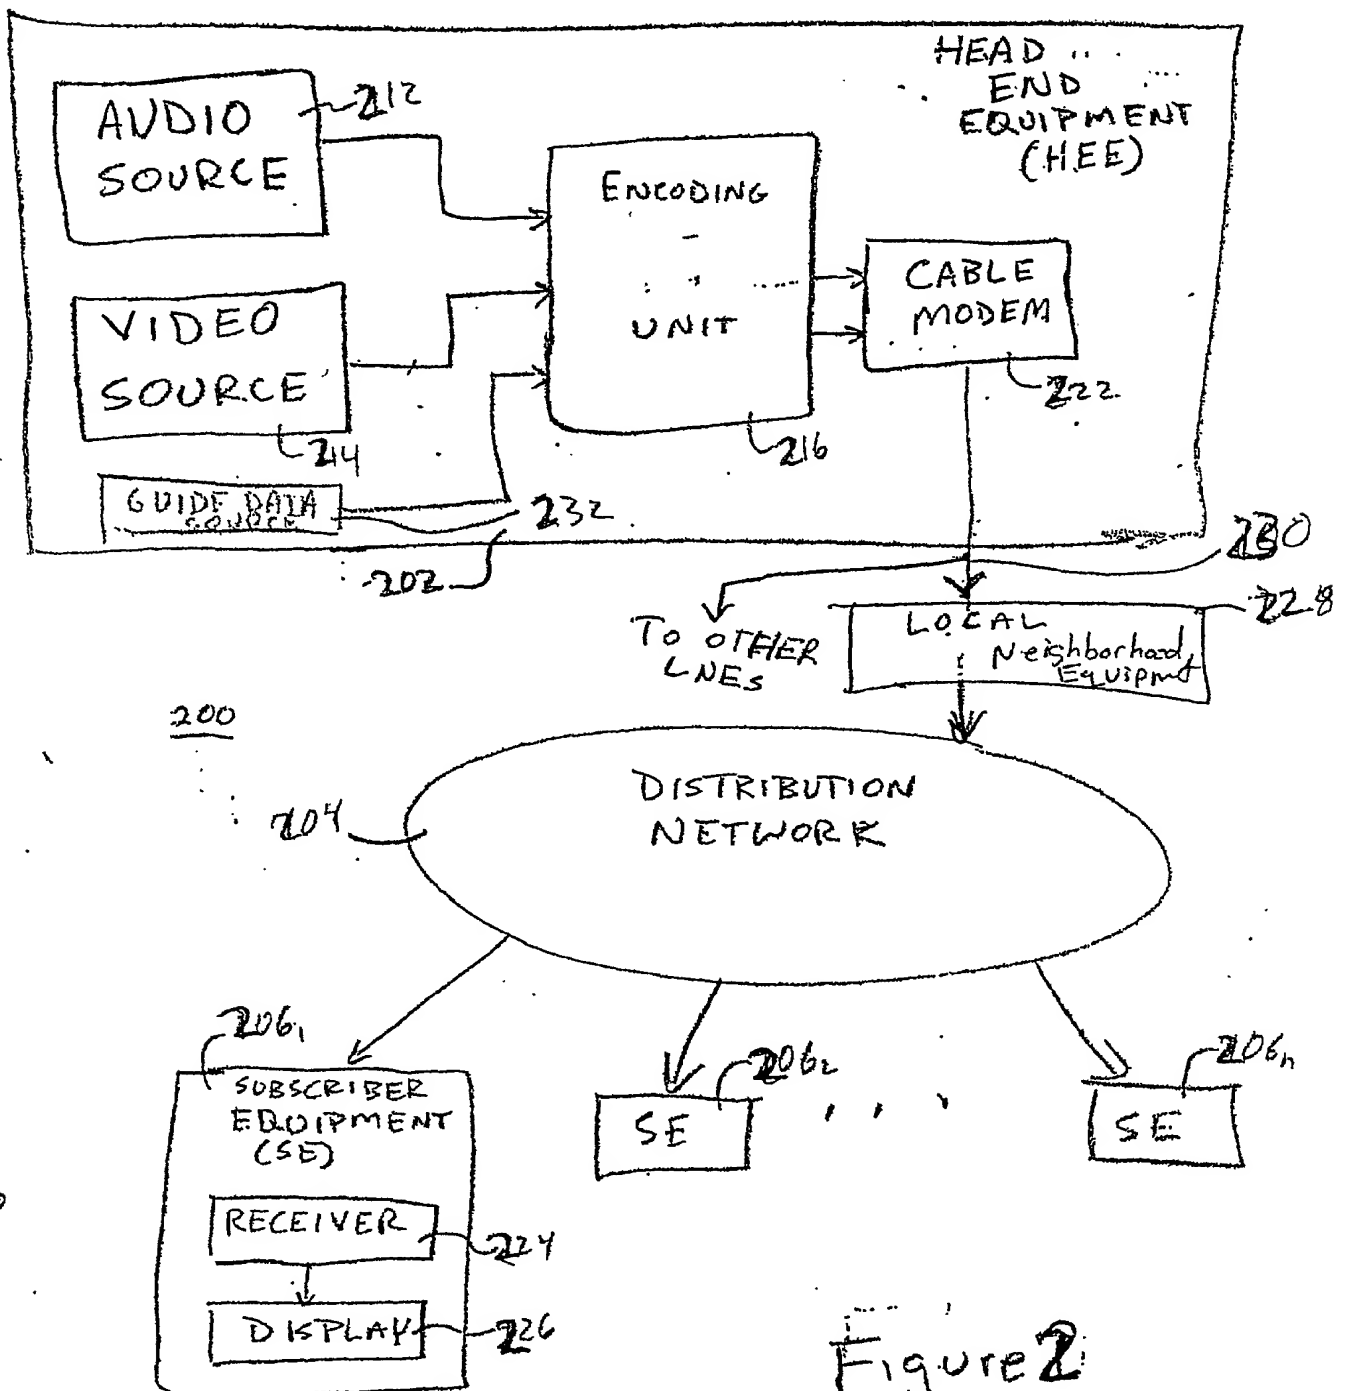 HEAD
END
EQUIPMENT
(HEE)
AUDIO
SOURCE
212
ENCODING
UNIT
216
CABLE
MODEM
222
VIDEO
SOURCE
214
GUIDE DATA
SOURCE
232
202
230
228
TO OTHER
LNES
LOCAL
Neighborhood
Equipmet
200
204
DISTRIBUTION
NETWORK
206₁
SUBSCRIBER
EQUIPMENT
(SE)
RECEIVER
224
DISPLAY
226
206₂
SE
206ₙ
SE
Figure 2